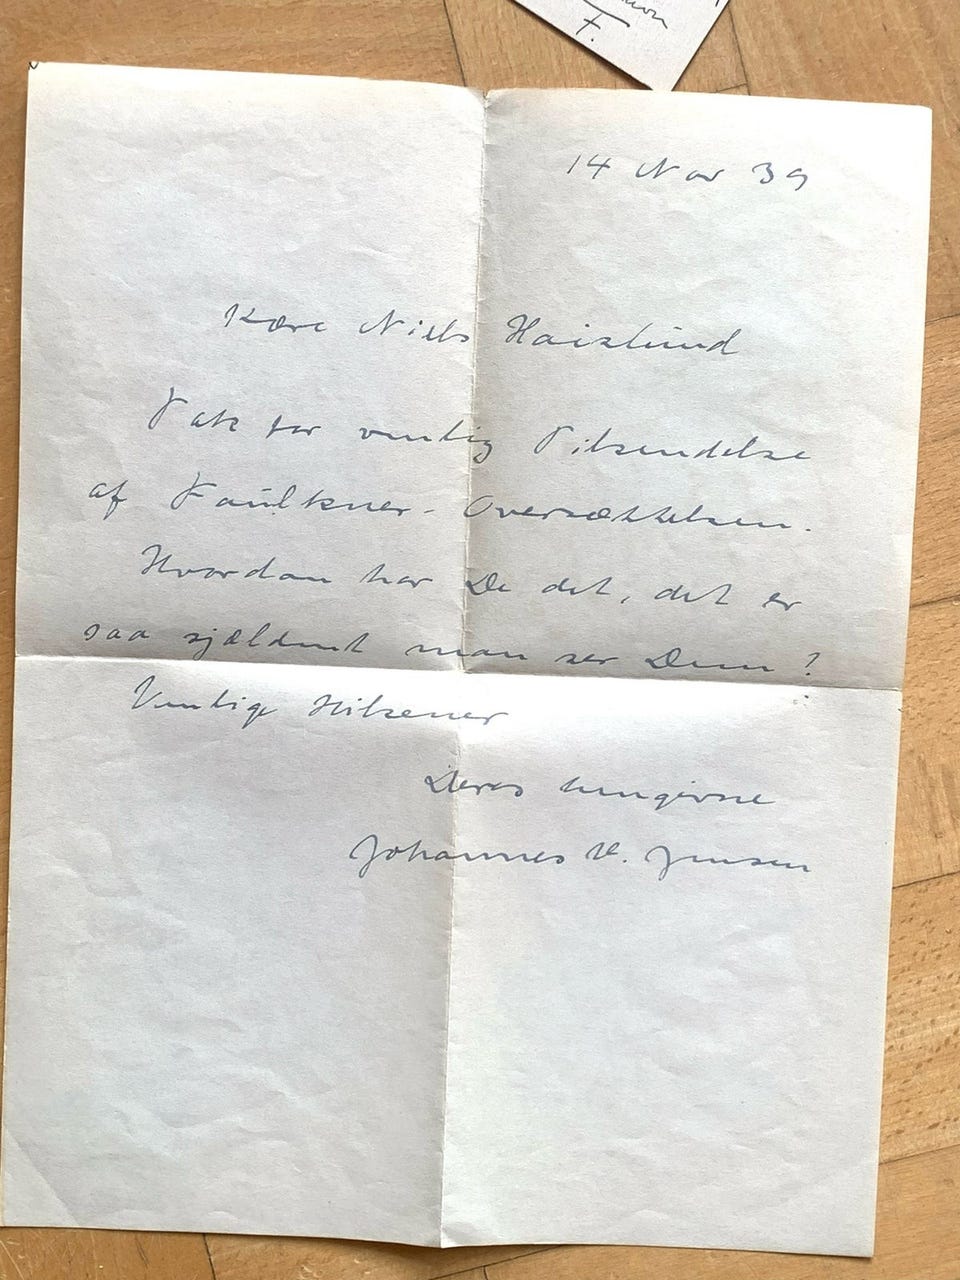 F.
14 Nov 39
Kære Niels Haislund
Tak for venlig Tilsendelse
af Faulkner-Oversættelsen.
Hvordan har De det, det er
saa sjældent man ser Dem?
Venlige Hilsener
Deres hengivne
Johannes V. Jensen